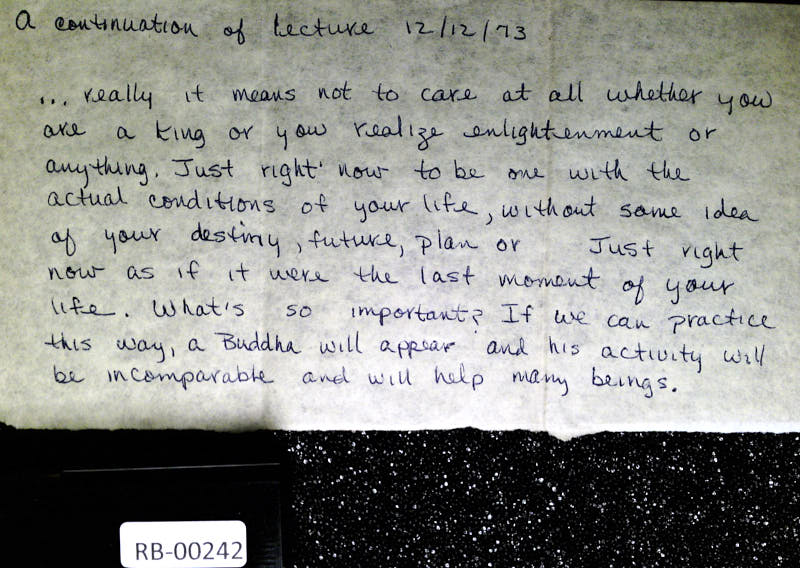 A continuation of Lecture 12/12/73
... really it means not to care at all whether you
are a king or you realize enlightenment or
anything. Just right now to be one with the
actual conditions of your life, without some idea
of your destiny, future, plan or Just right
now as if it were the last moment of your
life. What's so important? If we can practice
this way, a Buddha will appear and his activity will
be incomparable and will help many beings.
RB-00242